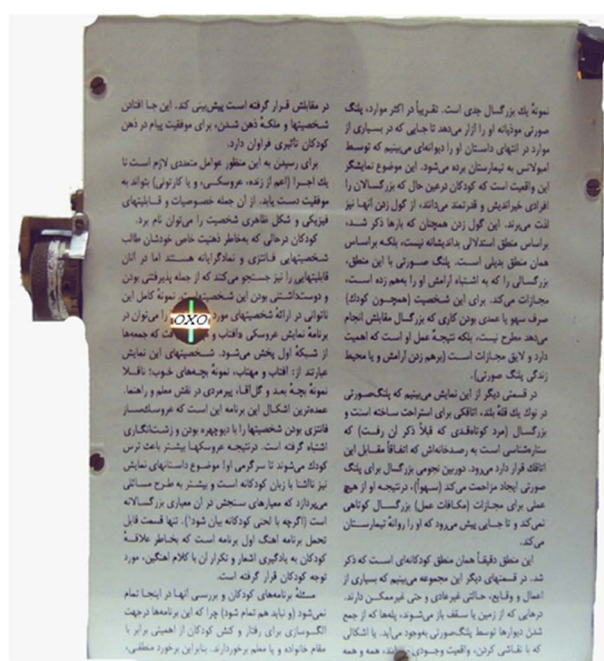 نمونهٔ یك بزرگسال جدی است. تقریباً در اکثر موارد، پلنگ
صورتی موذیانه او را آزار می‌دهد تا جایی که در بسیاری از
موارد در انتهای داستان او را دیوانه‌ای می‌بینیم که توسط
امبولانس به تیمارستان برده می‌شود. این موضوع نمایشگر
این واقعیت است که کودکان درعین حال که بزرگسالان را
افرادی خیراندیش و قدرتمند می‌دانند، از گول زدن آنها نیز
لذت می‌برند. این گول زدن همچنان که بارها ذکر شد،
براساس منطق استدلالی بداندیشانه نیست، بلکه براساس
همان منطق بدیلی است. پلنگ صورتی با این منطق،
بزرگسالی را که به اشتباه آرامش او را به‌هم زده است،
مجازات می‌کند. برای این شخصیت (همچون کودك)
صرف سهو یا عمدی بودن کاری که بزرگسال مقابلش انجام
می‌دهد مطرح نیست، بلکه نتیجهٔ عمل او است که اهمیت
دارد و لایق مجازات است (برهم زدن آرامش و یا محیط
زندگی پلنگ صورتی).
در قسمتی دیگر از این نمایش می‌بینیم که پلنگ‌صورتی
در نوك یك قلهٔ بلند، اتاقکی برای استراحت ساخته است و
بزرگسال (مرد کوتاه‌قدی که قبلاً ذکر آن رفت) که
ستاره‌شناسی است به رصدخانه‌اش که اتفاقاً مقابل این
اتاقك قرار دارد می‌رود. دوربین نجومی بزرگسال برای پلنگ
صورتی ایجاد مزاحمت می‌کند (سهواً)، درنتیجه او از هیچ
عملی برای مجازات (مکافات عمل) بزرگسال کوتاهی
نمی‌کند و تا جایی پیش می‌رود که او را روانهٔ تیمارستان
می‌کند.
این منطق دقیقاً همان منطق کودکانه‌ای است که ذکر
شد. در قسمتهای دیگر این مجموعه می‌بینیم که بسیاری از
اعمال و وقایع، حالتی غیرعادی و حتی غیرممکن دارند.
درهایی که از زمین یا سقف باز می‌شوند، پله‌ها که از جمع
شدن دیوارها توسط پلنگ‌صورتی به‌وجود می‌آید. یا اشکالی
که با نقاشی کردن، واقعیت وجودی همه و همه
در مقابلش قرار گرفته است پیش‌بینی کند. این جا افتادن
شخصیتها و ملکهٔ ذهن شدن، برای موفقیت پیام در ذهن
کودکان تأثیری فراوان دارد.
برای رسیدن به این منظور عوامل متعددی لازم است تا
یك اجرا (اعم از زنده، عروسکی، و یا کارتونی) بتواند به
موفقیت دست یابد. از آن جمله خصوصیات و قابلیتهای
فیزیکی و شکل ظاهری شخصیت را می‌توان نام برد.
کودکان درحالی که به‌خاطر ذهنیت خاص خودشان طالب
شخصیتهایی فانتزی و نمادگرایانه هستند اما در آنان
قابلیتهایی را نیز جستجو می‌کنند که از جمله پذیرفتنی بودن
و دوست‌داشتنی بودن این شخصیتهاست. نمونهٔ کامل این
ناتوانی در ارائهٔ شخصیتهای مورد را می‌توان در
برنامهٔ نمایش عروسکی «آفتاب و که جمعه‌ها
از شبکهٔ اول پخش می‌شود. شخصیتهای این نمایش
عبارتند از: آفتاب و مهتاب، نمونهٔ بچه‌های خوب؛ ناقلا
نمونهٔ بچهٔ بد و گل‌آقا، پیرمردی در نقش معلم و راهنما.
عمده‌ترین اشکال این برنامه این است که عروسك‌ساز
فانتزی بودن شخصیتها را با دیوچهره بودن و زشت‌انگاری
اشتباه گرفته است. درنتیجه عروسکها بیشتر باعث ترس
کودك می‌شوند تا سرگرمی او! موضوع داستانهای نمایش
نیز ناآشنا با زبان کودکانه است و بیشتر به طرح مسائلی
می‌پردازد که معیارهای سنجش در آن معیاری بزرگسالانه
است (اگرچه با لحنی کودکانه بیان شود!). تنها قسمت قابل
تحمل برنامه آهنگ اول برنامه است که بخاطر علاقهٔ
کودکان به یادگیری اشعار و تکرار آن با کلام آهنگین، مورد
توجه کودکان قرار گرفته است.
مسئلهٔ برنامه‌های کودکان و بررسی آنها در اینجا تمام
نمی‌شود (و نباید هم تمام شود) چرا که این برنامه‌ها درجهت
الگوسازی برای رفتار و کنش کودکان از اهمیتی برابر با
مقام خانواده و یا معلم برخوردارند. بنابراین برخورد منطقی،
OXO